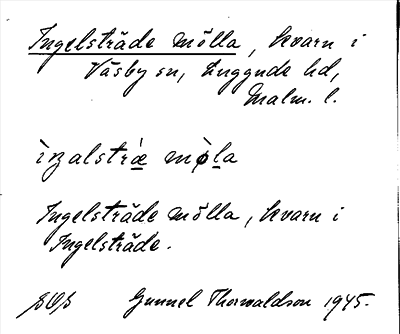 Ingelsträde mölla, kvarn i
Väsby sn, Luggude hd,
Malm. l.
Ingelsträde mölla, kvarn i
Ingelsträde.
Gunnel Thorwaldson 1945.